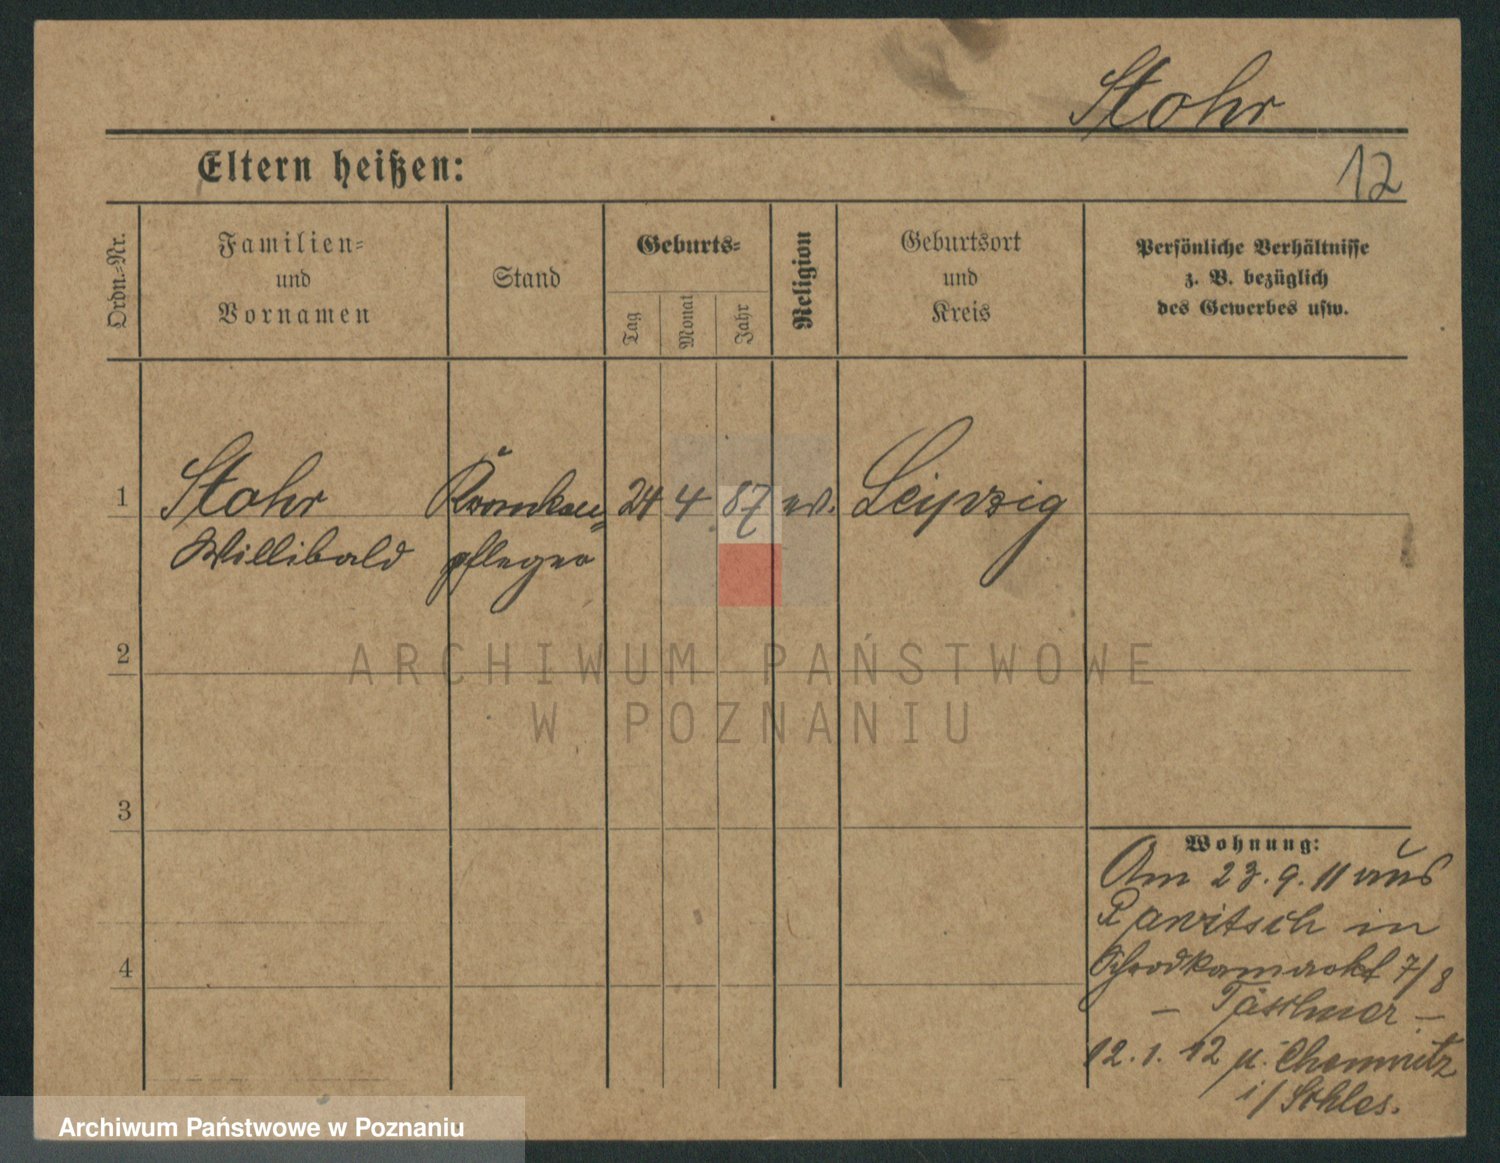 Stohr
Eltern heißen:
12
Ordn.-Nr.
Familien-
und
Vornamen
Stand
Geburts-
Tag
Monat
Jahr
Religion
Geburtsort
und
Kreis
Persönliche Verhältnisse
z. B. bezüglich
des Gewerbes usw.
1
Stohr Kranken- 24 4 87 ev. Leipzig
Willibald pfleger
2
ARCHIWUM PAŃSTWOWE
W POZNANIU
3
Wohnung:
Am 23.9.11 aus
Rawitsch in
7/8
4
12.1.12 n. Chemnitz
i/ Schles.
Archiwum Państwowe w Poznaniu